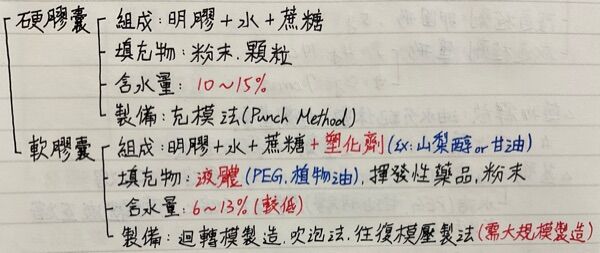 硬膠囊 組成:明膠+水+蔗糖
填充物:粉末.顆粒
含水量:10~15%
製備:充模法(Punch Method)
軟膠囊 組成:明膠+水+蔗糖+塑化劑(Ex:山梨醇or甘油)
填充物:液體(PEG.植物油),揮發性藥品.粉末
含水量:6~13%(較低)
製備:迴轉模製造.吹泡法.往復模壓製法(需大規模製造)